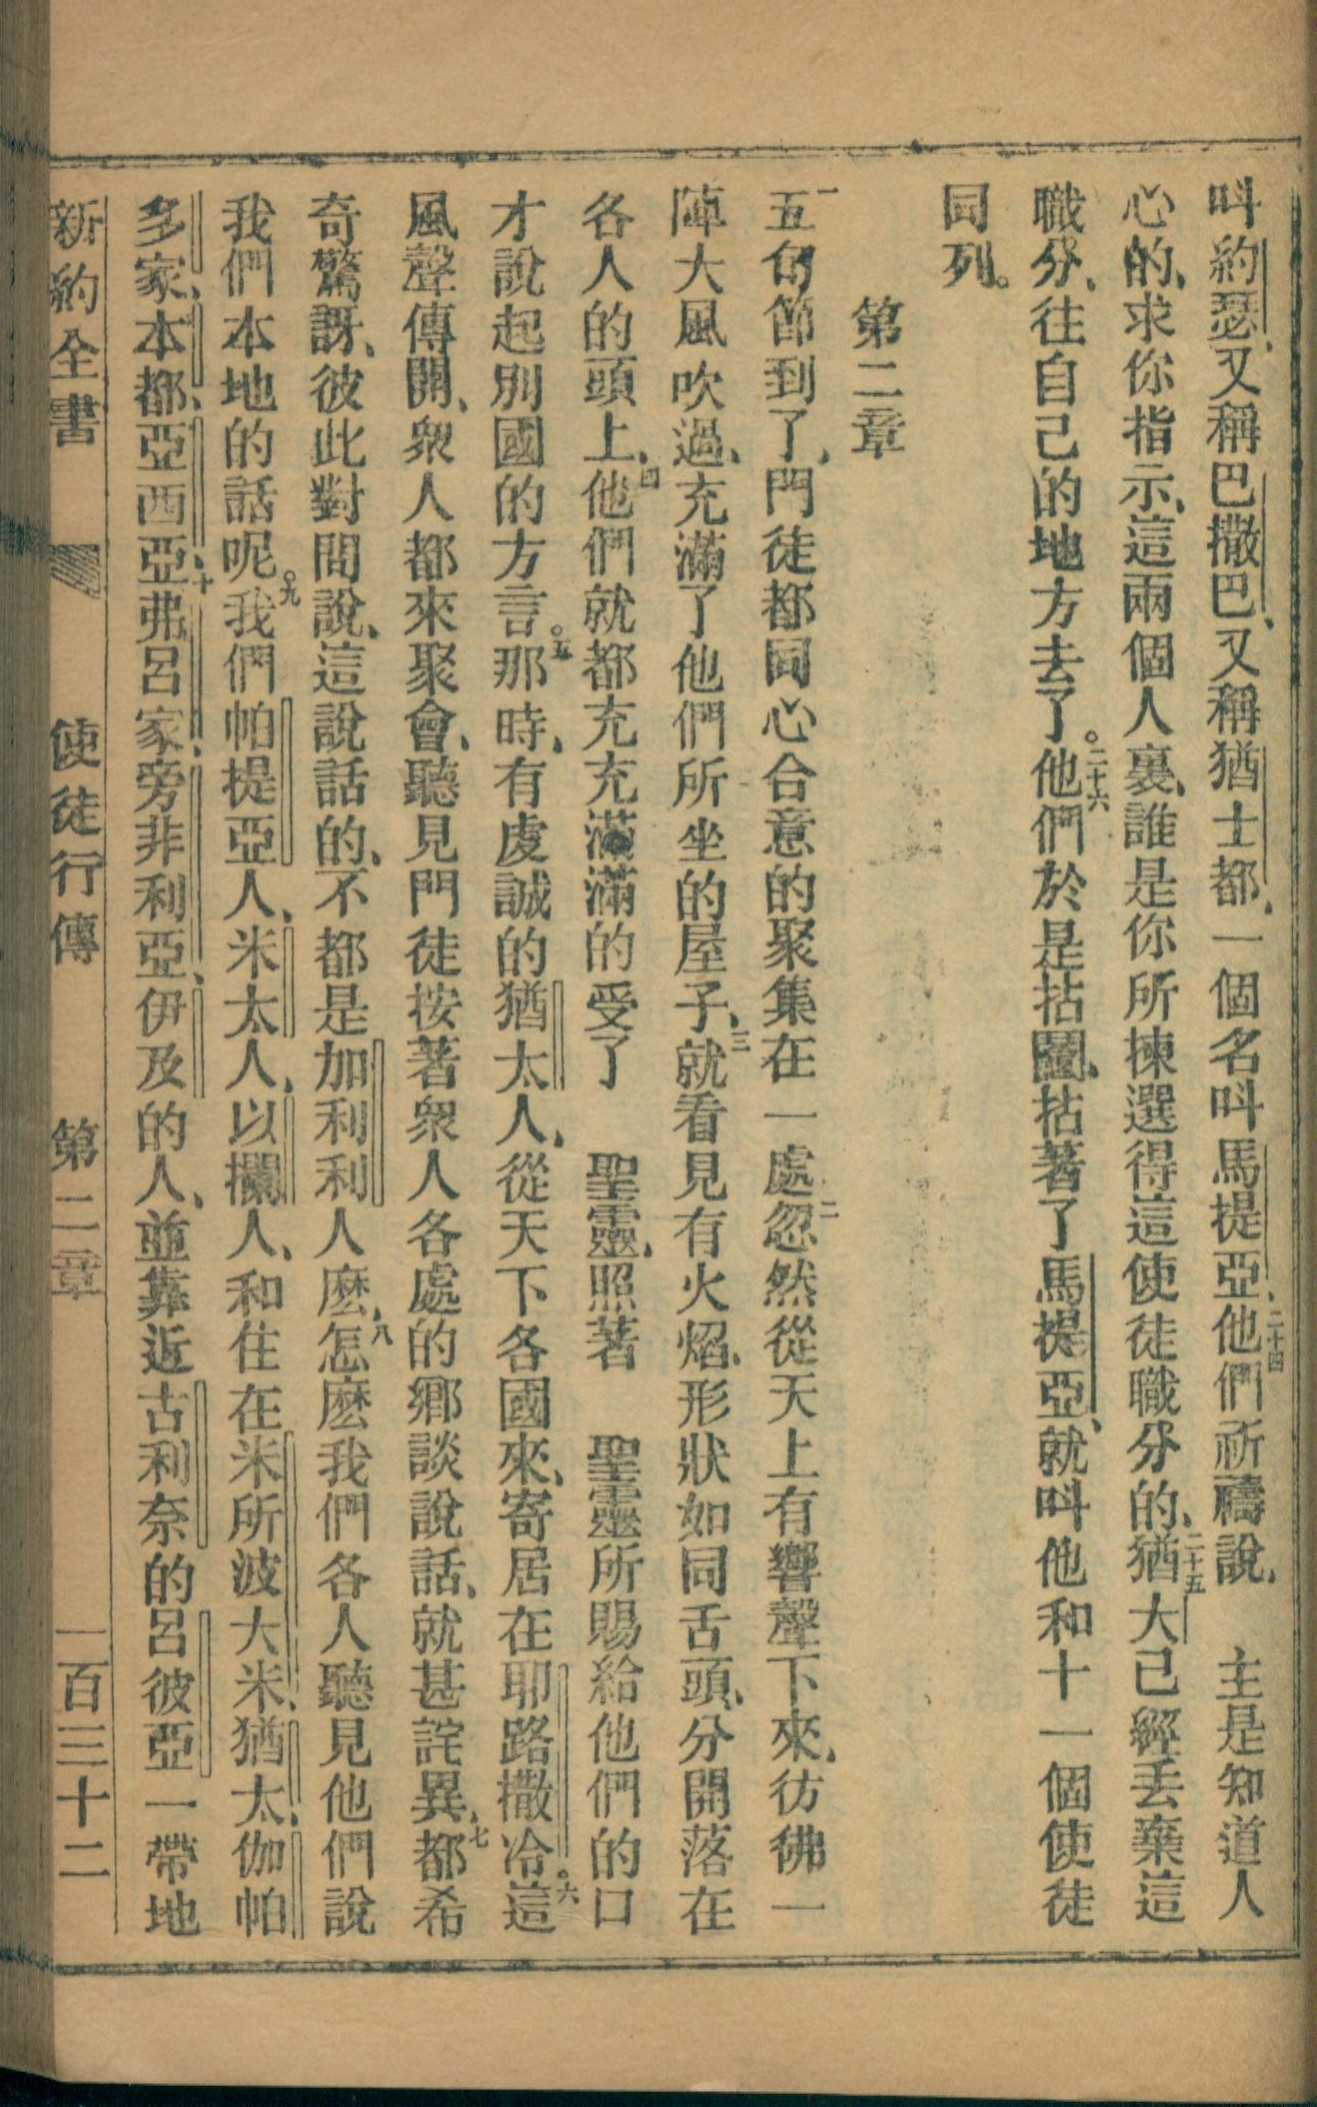 叫約瑟、又稱巴撒巴、又稱猶士都、一個名叫馬提亞、二十四他們祈禱說、　主是知道人
心的、求你指示、這兩個人裏、誰是你所揀選得這使徒職分的、二十五猶大已經丢棄這
職分、往自己的地方去了。二十六他們於是拈鬮、拈著了馬提亞、就叫他和十一個使徒
同列。
第二章
一五旬節到了、門徒都同心合意的聚集在一處、二忽然從天上有響聲下來、彷彿一
陣大風吹過、充滿了他們所坐的屋子、三就看見有火焰、形狀如同舌頭、分開落在
各人的頭上、四他們就都充充滿滿的受了　聖靈、照著　聖靈所賜給他們的口
才說起別國的方言。五那時、有虔誠的猶太人、從天下各國來、寄居在耶路撒冷。六這
風聲傳開、衆人都來聚會、聽見門徒按著衆人各處的鄉談說話、就甚詫異、七都希
奇驚訝、彼此對問說、這說話的、不都是加利利人麽、八怎麽我們各人聽見他們說
我們本地的話呢。九我們帕提亞人、米太人、以攔人、和住在米所波大米、猶太、伽帕
多家、本都、亞西亞、十弗呂家、旁非利亞、伊及的人、並靠近古利奈的呂彼亞一帶地
新約全書　使徒行傳　第二章　一百三十二